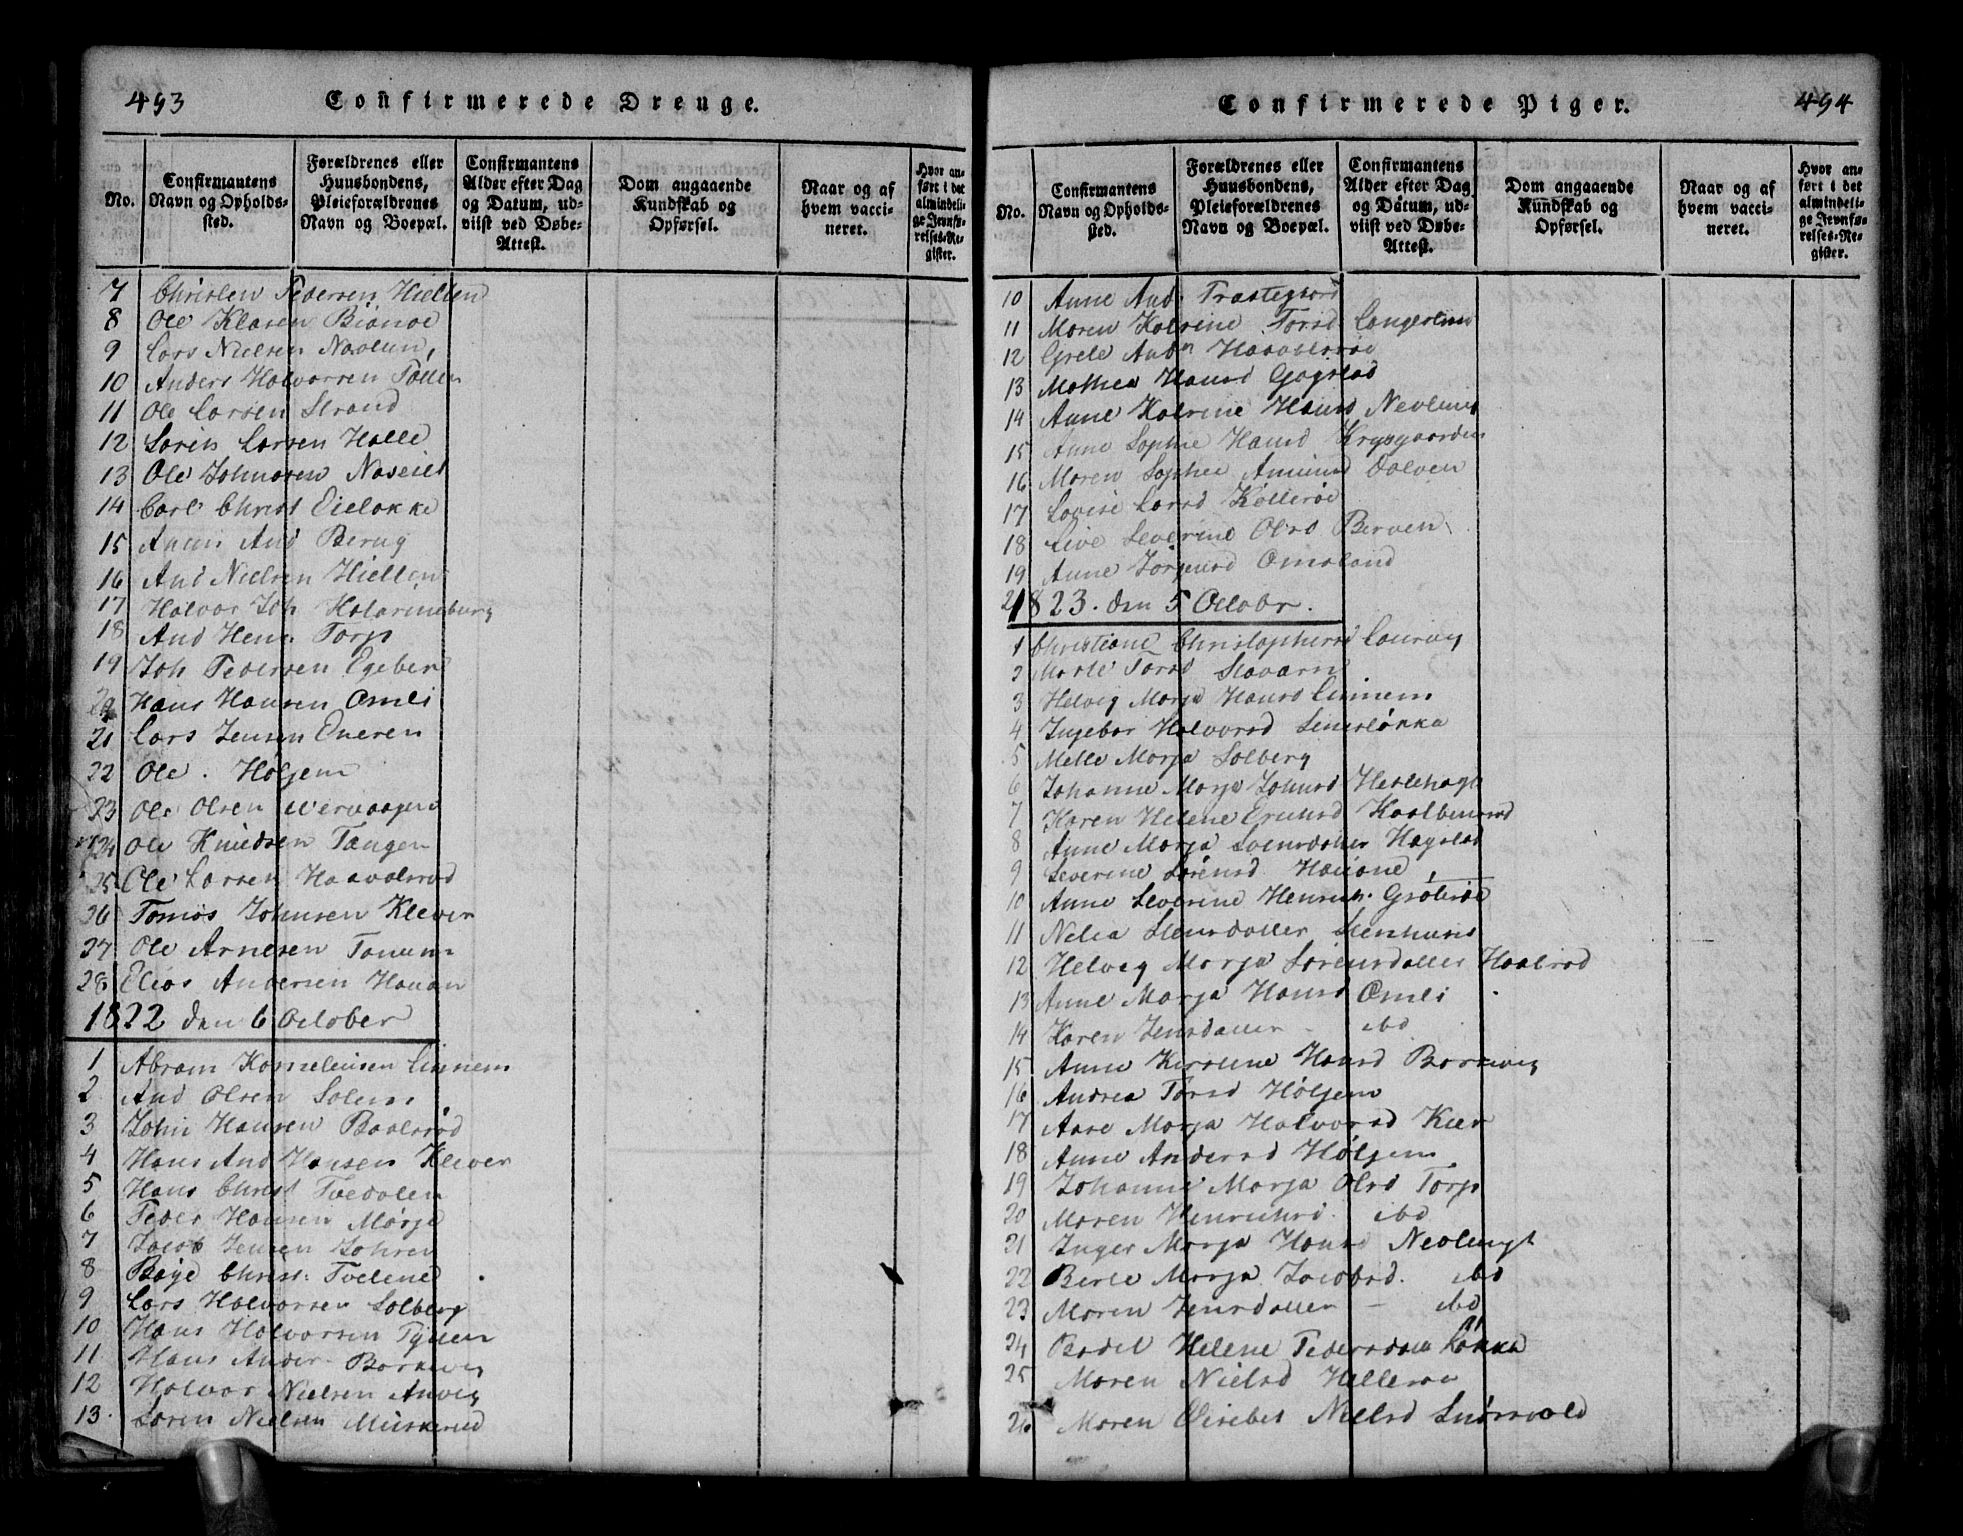 493
Confirmerede Drenge.
No.
Confirmantens Navn og Opholds-sted.
Forældrenes eller Huusbondens, Pleieforældrenes Navn og Boepæl.
Confirmantens Alder efter Dag og Datum, ud-viist ved Døbe-Attest.
Dom angaaende Kundskab og Opførsel.
Naar og af hvem vacci-neret.
Hvor an-ført i det almindeli-ge Jevnfø-relses-Re-gister.
7 Christen Pedersen Hiellen
8 Ole Klasen Bionöe
9 Lars Nielsen
10 Anders Halvorsen
11 Ole Larsen Strand
12 Søren Larsen Halle
13 Ole Johnosen Naseiet
14 Carl Christ Eieløkke
15 And Berug
16 And Nielsen Hiellen
17 Halvor Joh Katarineburg
18 And Hens Torp
19 Joh Pedersen Egeber
20 Hans Hansen Omli
21 Lars Jensen Oneren
22 Ole . Holjem
23 Ole Olsen Wervaagen
24 Ole Knudsen Tangen
25 Ole Larsen Haavalsrød
26 Tomas Johnsen Klever
27 Ole Arnesen Tanum
28 Elias Andersen Hauan
1822 den 6 October
1 Abram Korneleusen Linnem
2 And Olsen Solem
3 John Hansen Baalsrød
4 Hans And Hansen Klever
5 Hans Christ Tvedalen
6 Peder Hansen Mørje
7 Jacob Jensen
8 Böye Christ: Tvelene
9 Lars Halvorsen Solberg
10 Hans Halvorsen
11 Hans Ander Barkevig
12 Halvor Nielsen Anvig
13. Søren Nielsen Muskerud
494
Confirmerede Piger.
No.
Confirmantens Navn og Opholds-sted.
Forældrenes eller Huusbondens, Pleieforældrenes Navn og Boepæl.
Confirmantens Alder efter Dag og Datum, ud-viist ved Døbe-Attest.
Dom angaaende Kundskab og Opførsel.
Naar og af hvem vacci-neret.
Hvor an-ført i det almindeli-ge Jevnfø-relses-Re-gister.
10 Anne And. Præstegord
11 Maren Katrine Torsd Langestun
12 Grete Andn Haavalsröe
13 Mathea Hansd Gogstad
14 Anne Katrine Hansd Nevlung
15 Anne Sophie Hansd Krysgaarden
16 Maren Sophie Amund Dolven
17 Lovise Larsd Kölleröe
18 Live Severine Olsd Berven
19 Anne Jørgensd Omsland
1823. den 5 Octobr.
1 Christiane Christophersd Laurvig
2 Marte Torsd Stavarn
3 Helvig Marja Hansd Linnem
4 Ingebor Halvorsd
5 Mette Marja Solberg
6 Johanne Marja Johnsd
7 Karen Helene
8 Anne Marja Svensdatter Hagstad
9 Severine Sørensd Hauane
10 Anne Severine Henrich.
11 Nelea Stensdatter Stenhuus
12 Helvig Marja Sørensdatter Haalrød
13 Anne Marja Hansd Omli
14 Karen Jensdatter - ibd
15 Anne Kirstine Hansd Barkevig
16 Andrea Torsd Höljem
17 Aase Marja Halvorsd Kiær
18 Anne Andersd Höljem
19 Johanne Marja Olsd Torp
20 Maren Henrichsd. ibd
21 Inger Marja Hansd
22 Berte Marja Jacobsd. ibd
23 Maren Jensdatter - ibd
24 Bodel Helene Pedersdatter Løkka
25 Maren Nielsd Helleröe
26 Maren Elisebet Nielsd